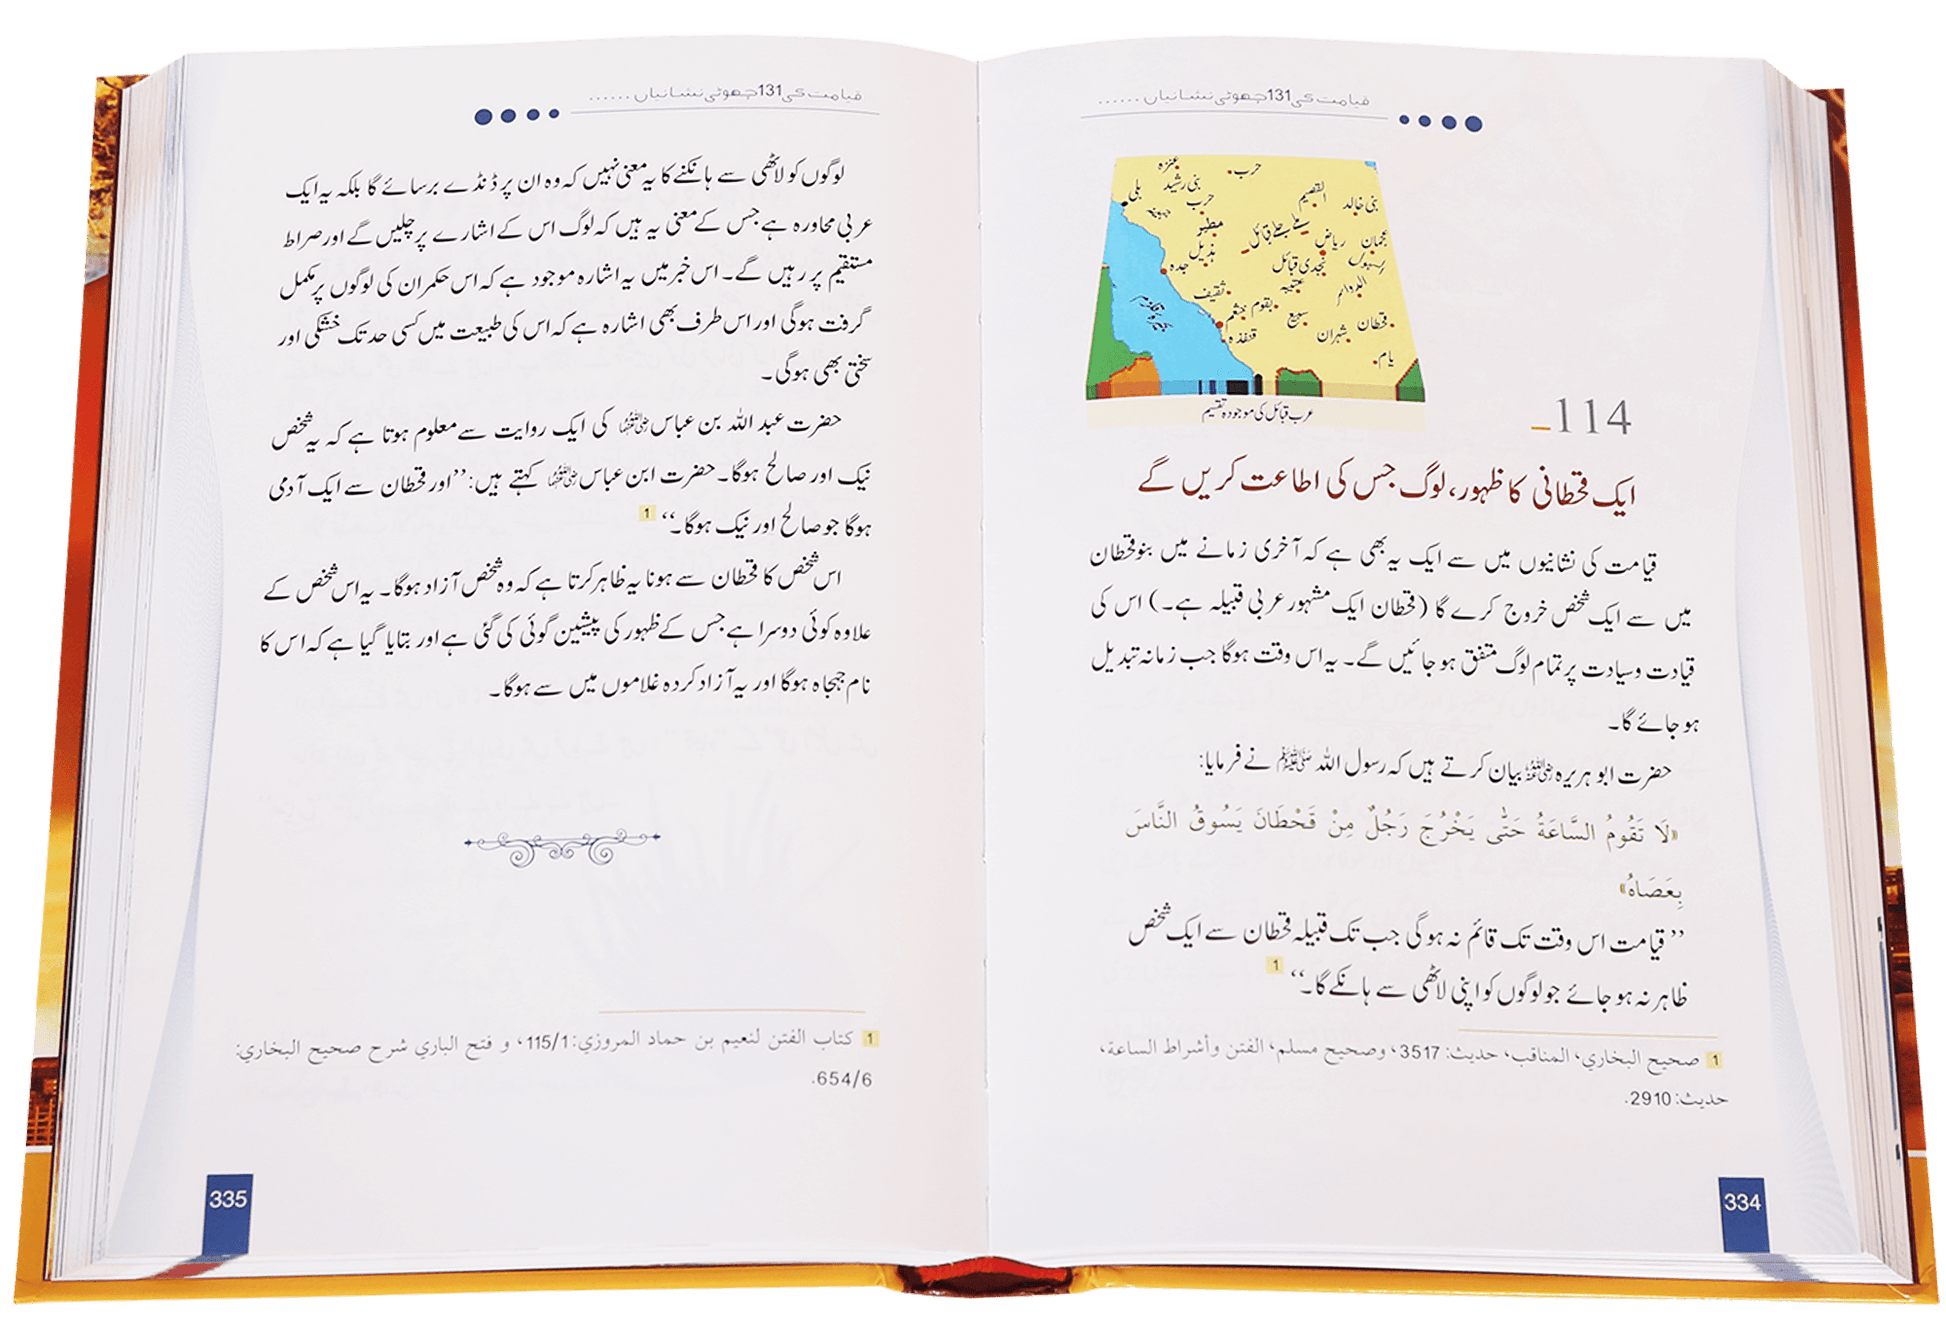 قیامت کی 131 چھوٹی نشانیاں ......
عنزہ
حرب
بنی رشید
بلی
حرب
القصیم
بنی خالد
مطیر
ملے جلے قبائل
ریاض
عجمان
ہذیل
جدہ
نجدی قبائل
الدواسر
عتیبہ
ثقیف
بقوم
خثعم
سبیع
قحطان
شہران
قنفذہ
یام
عرب قبائل کی موجودہ تقسیم
114
ایک قحطانی کا ظہور، لوگ جس کی اطاعت کریں گے
قیامت کی نشانیوں میں سے ایک یہ بھی ہے کہ آخری زمانے میں بنو قحطان
میں سے ایک شخص خروج کرے گا (قحطان ایک مشہور عربی قبیلہ ہے۔) اس کی
قیادت وسیادت پر تمام لوگ متفق ہو جائیں گے۔ یہ اس وقت ہوگا جب زمانہ تبدیل
ہو جائے گا۔
حضرت ابو ہریرہ رضی اللہ عنہ بیان کرتے ہیں کہ رسول اللہ ﷺ نے فرمایا:
«لَا تَقُومُ السَّاعَةُ حَتَّى يَخْرُجَ رَجُلٌ مِنْ قَحْطَانَ يَسُوقُ النَّاسَ
بِعَصَاهُ»
’’قیامت اس وقت تک قائم نہ ہوگی جب تک قبیلہ قحطان سے ایک شخص
ظاہر نہ ہو جائے جو لوگوں کو اپنی لاٹھی سے ہانکے گا۔‘‘ 1
1 صحيح البخاري، المناقب، حديث: 3517، وصحيح مسلم، الفتن وأشراط الساعة،
حديث: 2910.
334
قیامت کی 131 چھوٹی نشانیاں ......
لوگوں کو لاٹھی سے ہانکنے کا یہ معنی نہیں کہ وہ ان پر ڈنڈے برسائے گا بلکہ یہ ایک
عربی محاورہ ہے جس کے معنی یہ ہیں کہ لوگ اس کے اشارے پر چلیں گے اور صراط
مستقیم پر رہیں گے۔ اس خبر میں یہ اشارہ موجود ہے کہ اس حکمران کی لوگوں پر مکمل
گرفت ہوگی اور اس طرف بھی اشارہ ہے کہ اس کی طبیعت میں کسی حد تک خشکی اور
سختی بھی ہوگی۔
حضرت عبد اللہ بن عباس رضی اللہ عنہما کی ایک روایت سے معلوم ہوتا ہے کہ یہ شخص
نیک اور صالح ہوگا۔ حضرت ابن عباس رضی اللہ عنہما کہتے ہیں: ’’اور قحطان سے ایک آدمی
ہوگا جو صالح اور نیک ہوگا۔‘‘ 1
اس شخص کا قحطان سے ہونا یہ ظاہر کرتا ہے کہ وہ شخص آزاد ہوگا۔ یہ اس شخص کے
علاوہ کوئی دوسرا ہے جس کے ظہور کی پیشین گوئی کی گئی ہے اور بتایا گیا ہے کہ اس کا
نام جہجاہ ہوگا اور یہ آزاد کردہ غلاموں میں سے ہوگا۔
1 كتاب الفتن لنعيم بن حماد المروزي: 115/1، و فتح الباري شرح صحيح البخاري:
654/6.
335